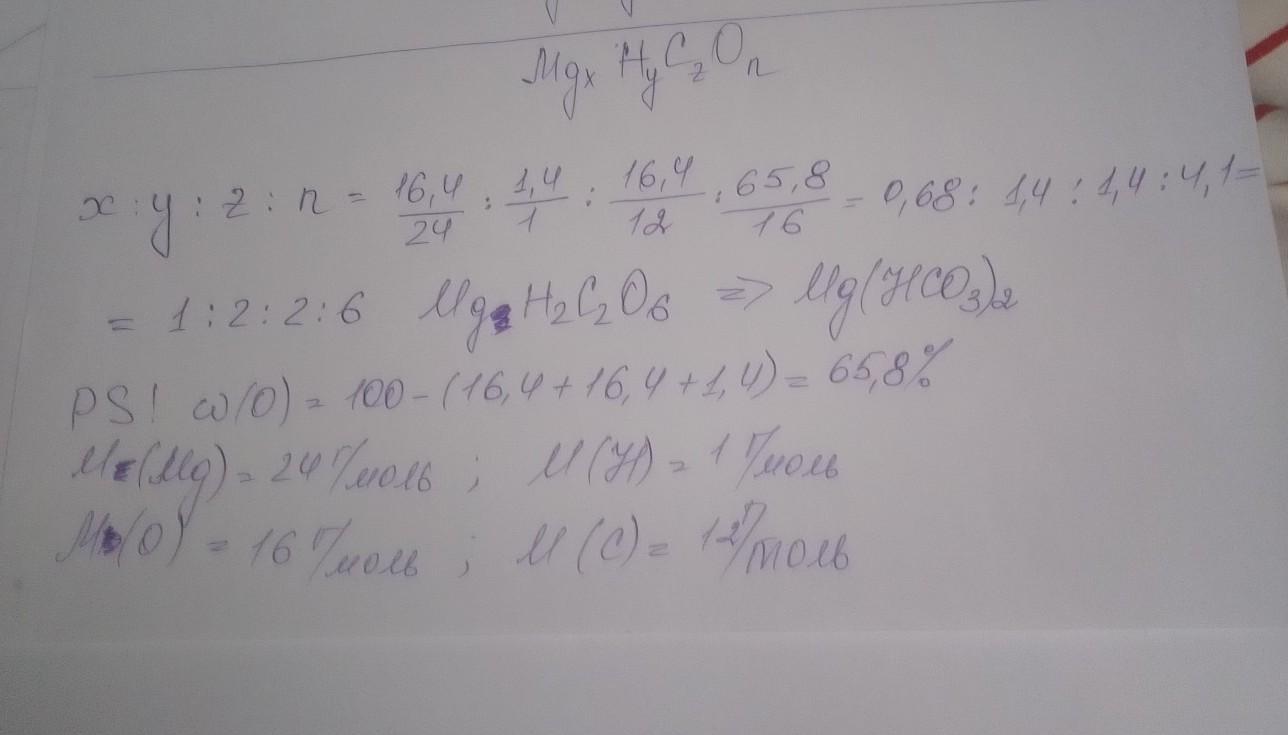 Mgx HyCzOn
x : y : z : n = 16,4/24 : 1,4/1 : 16,4/12 : 65,8/16 = 0,68 : 1,4 : 1,4 : 4,1 =
= 1 : 2 : 2 : 6 Mg H2C2O6 => Mg(HCO3)2
PS! ω(O) = 100 - (16,4 + 16,4 + 1,4) = 65,8%
M(Mg) = 24 г/моль ; M(H) = 1 г/моль
M(O) = 16 г/моль ; M(C) = 12 г/моль